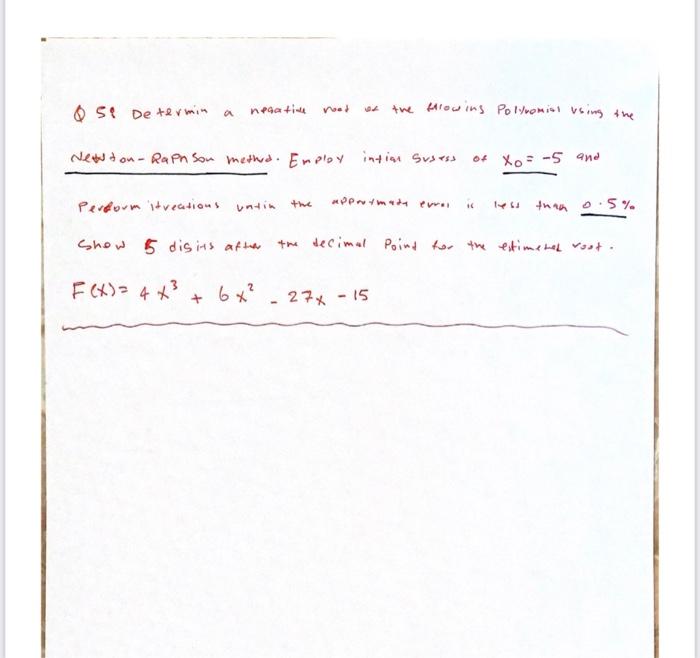 Q 5: Determin a negative root of the fllowing Polynomial using the
Newton-Raphson method. Employ intial Guess of X₀ = -5 and
Perform itreations until the approtmate error is less than 0.5%
Show 5 digits after the decimal Point for the estimated root.
F(x) = 4x³ + 6x² - 27x - 15